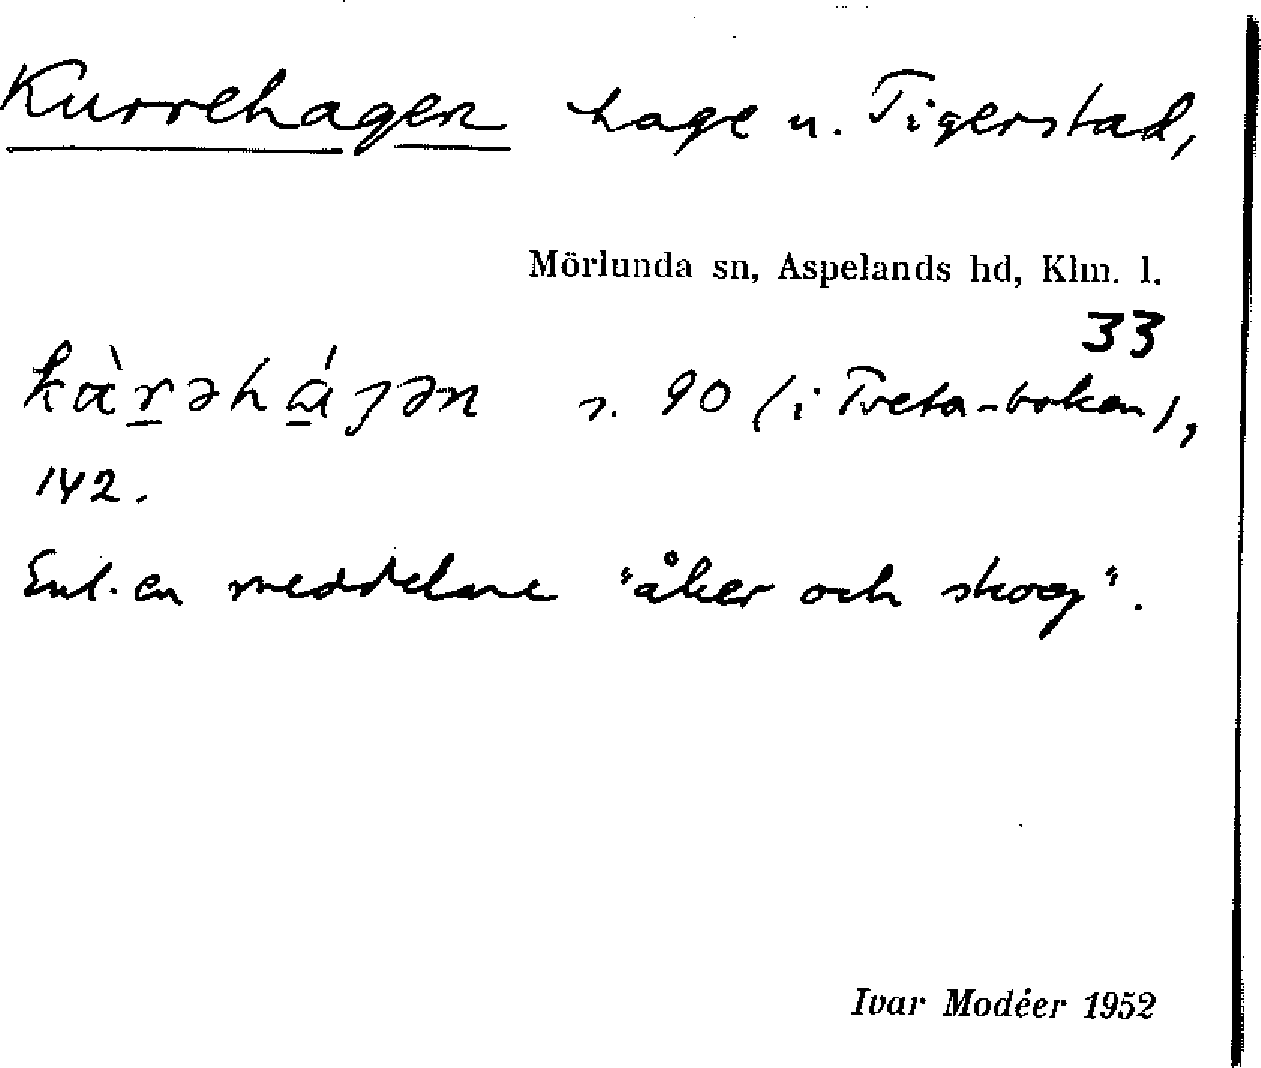 Kurrehagen hage u. Tigerstad,
Mörlunda sn, Aspelands hd, Klm. l.
33
kàr̲əhá̲ʒən s. 90 (i Tveta-boken),
142.
Enl. en meddelare "åker och skog".
Ivar Modéer 1952